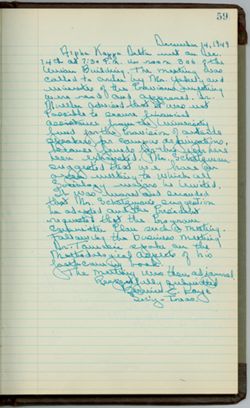 59
December 14, 1949
Alpha Kappa Delta met on Dec.
14th at 7:30 P.M. in room 306 of the
Union Building. The meeting was
called to order by Mr. and
minutes of the previous meeting
were read and approved. Dr.
Mueller advised that it was not
possible to secure financial
assistance from the University
fund for the provision of outside
speakers for campus organizations,
because funds for this year had
been exhausted. Mr.
suggested that we have an
open meeting to which all
Sociology majors be invited.
It was moved and seconded
that Mr. suggestion
be adopted and the President
requested that the Program
Committee plan such a meeting.
Following the business meeting
Dr. spoke on the
Methodological aspects of his
book.
The meeting was then adjourned.
Respectfully submitted
Secy-Treas.